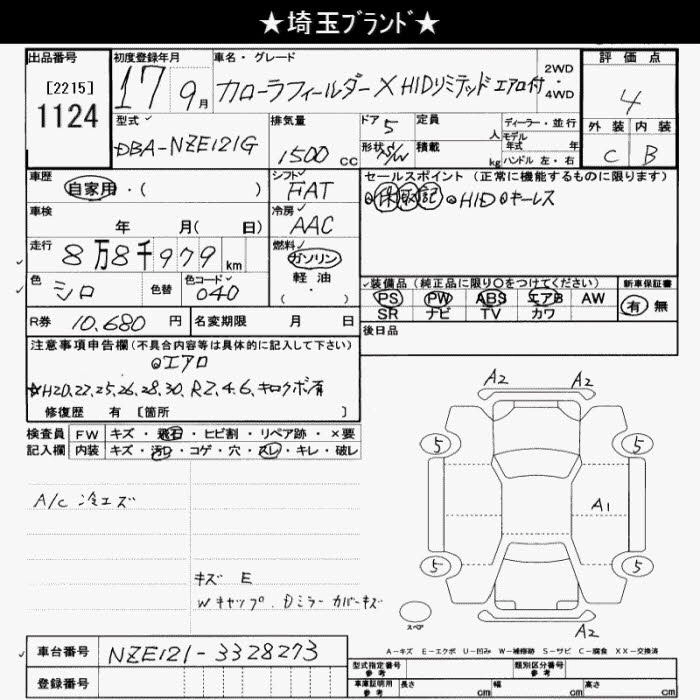 ★埼玉ブランド★
出品番号 初度登録年月 車名・グレード 評価点
[2215] 17 9月 カローラフィールダー X HIDリミテッド エアロ付 ・2WD ・4WD 4
1124
型式 排気量 ドア 5 定員 人 ディーラー・並行 外装 内装
DBA-NZE121G 1500 cc 形状 S/W 積載 kg モデル年式 年式 ハンドル 左・右 C B
車歴 シフト セールスポイント (正常に機能するものに限ります)
自家用・( ) FAT ⊙保取記 ⊙HID ⊙キーレス
車検 冷房
年 月(日) AAC
走行 8万8千979km 燃料 ガソリン 軽油 (・)
色 シロ 色替 色コード 040 装備品 (純正品に限り○をつけてください) 新車保証書
PS PW ABS エアB AW 有 無
SR ナビ TV カワ
R券 10,680円 名変期限 月 日 後日品
注意事項申告欄(不具合内容等は具体的に記入して下さい)
⊙エアロ
☆H20,22,25,26,28,30, R2,4,6,キロクボ有
修復歴 有 [箇所 ]
検査員 FW キズ・飛石・ヒビ割・リペア跡・×要
記入欄 内装 キズ・汚れ・コゲ・穴・スレ・キレ・破レ
A2 A2
5 5
A/C 冷エズ A1
5 5
キズ E
Wキャップ、Dミラーカバーキズ
スペア A2
A-キズ E-エクボ U-凹み W-補修跡 S-サビ C-腐食 XX-交換済
車台番号 NZE121-3328273
型式指定番号 参考 類別区分番号 参考
登録番号 車庫証明用 参考 長さ cm 幅 cm 高さ cm